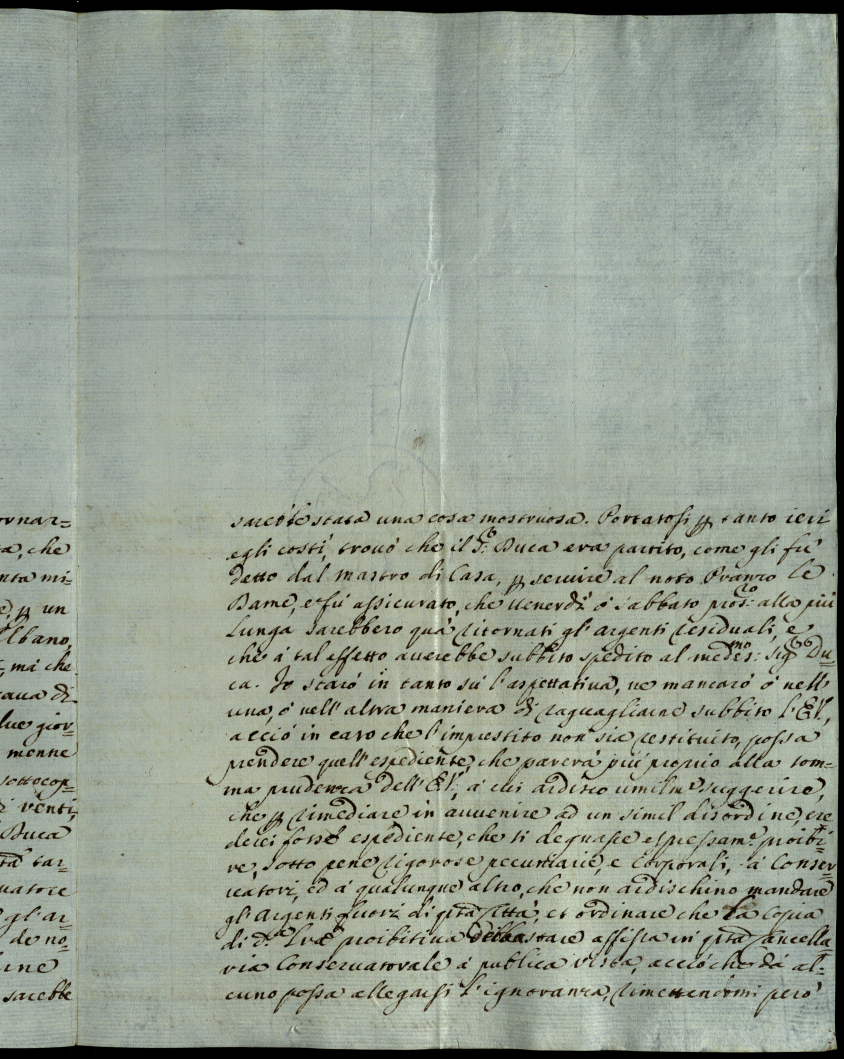 ornar=
ta, che
nta mi=
un
Albano,
, má che
caua di
due gior=
menne
sottocop=
venti,
Duca
tar=
uatore
gl'ar=
de no=
une
sarebbe
sarebbe stata una cosa mostruosa. Portatosi ꝑ tanto ieri
egli costì, trouò che il S.r Duca era partito, come gli fù
detto dal mastro di Casa, ꝑ seruire al noto Pranzo le
Dame, e fù assicurato, che Uenerdì ò Sabbato pros.o alla più
lunga sarebbero quà ritornati gl'argenti residuali, e
che á tal effetto auerebbe subbito spedito al medes:mo Sig.r Du=
ca. Io starò in tanto sù l'aspettatiua, ne mancarò ò nell'
una, ò nell'altra maniera di raguagliarne subbito l'EV,
acciò in caso che l'imprestito non sia restituito, possa
prendere quell'espediente, che parerà più proprio alla som=
ma prudenza dell'EV, á cui ardisco umilm.e suggerire,
che ꝑ rimediare in auuenire ad un simil disordine, cre
derei fosse espediente, che si degnasse espressam.e proibi=
re, sotto pene rigorose pecuniarie, e corporali, á Conser=
uatori, ed á qualunque altro, che non ardischino mandare
gl'Argenti fuori di q̃sta Città, et ordinare che la copia
di d.a l̃ra proibitiua debba stare affissa in q̃sta Cancella=
ria Conseruatorale á publica uista, acciò che dá al=
cuno possa allegarsi l'ignoranza, rimettendomi però